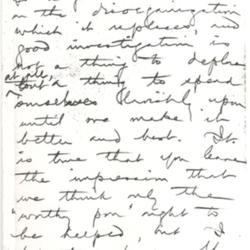 on the disorganization
which it replaces, and
good investigation is
not a thing to deplore
at all, but a thing to spend
ourselves lavishly upon
until one make it
better and best. It
is true that you leave
the impression that
we think only the
"worthy poor" ought to
be helped, but I